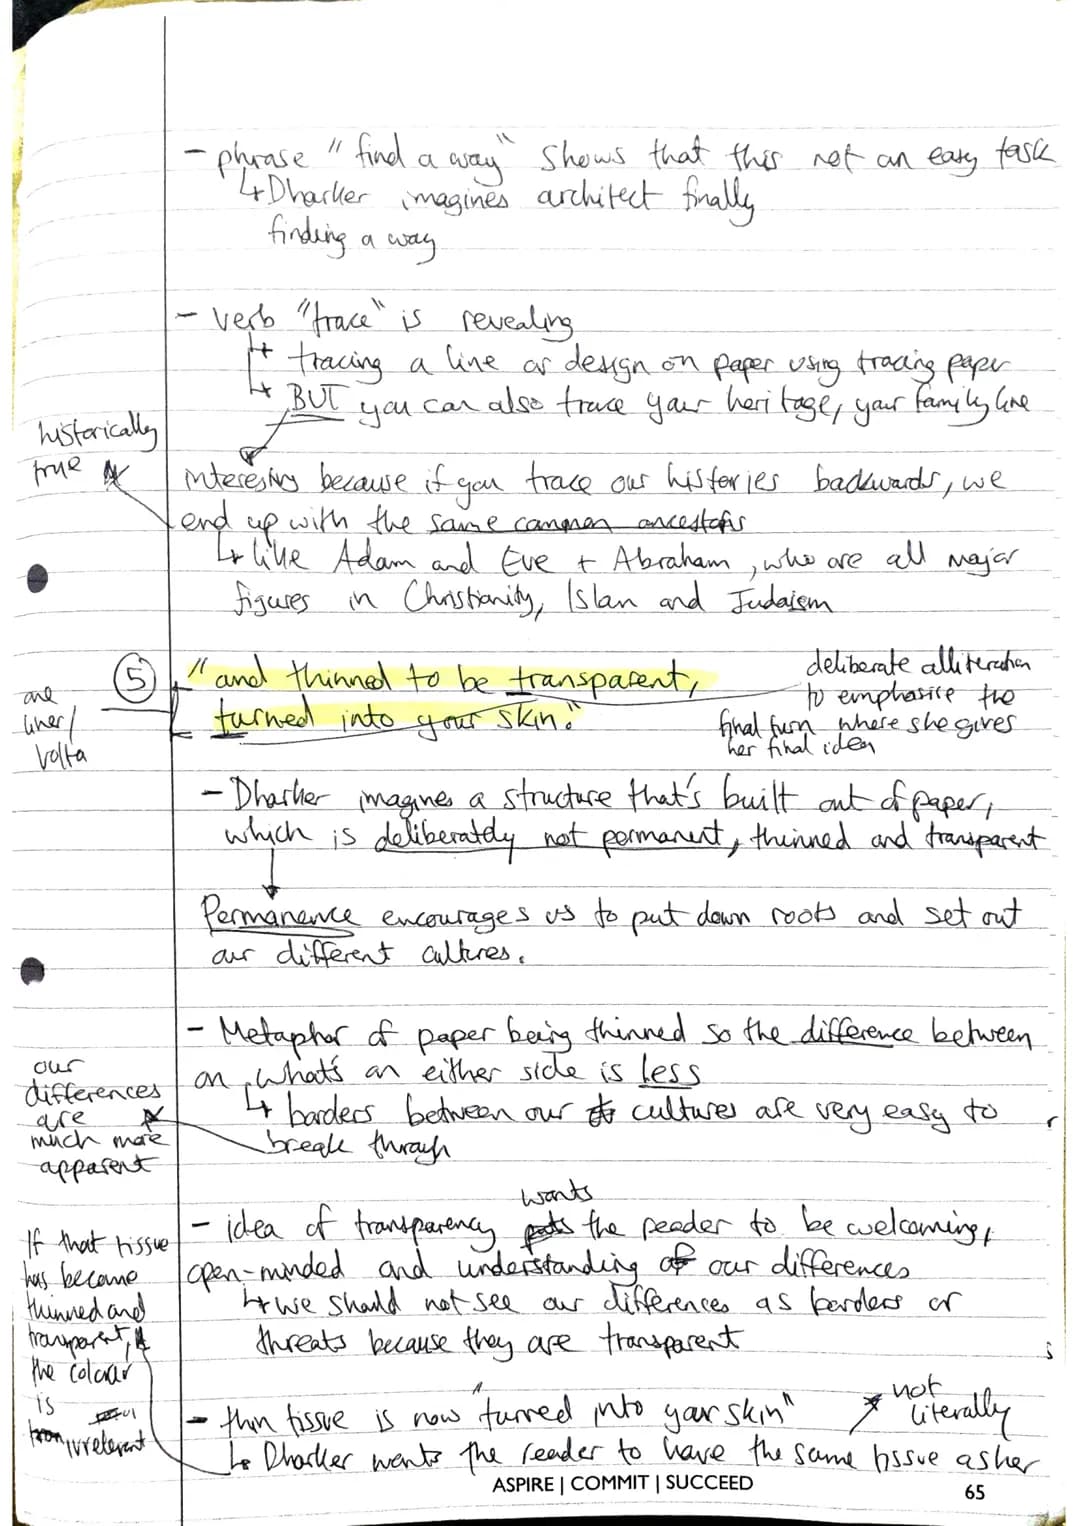 - phrase "find a way" shows that this not an easy task
↳ Dharker imagines architect finally
finding a way
- verb "trace" is revealing
↳ tracing a line or design on paper using tracing paper
↳ BUT you can also trace your heritage, your family line
historically
true
interesting because if you trace our histories backwards, we
end up with the same common ancestors
↳ like Adam and Eve + Abraham, who are all major
figures in Christianity, Islam and Judaism
one
liner/
volta
5
"and thinned to be transparent,
turned into your skin."
deliberate alliteration
to emphasise the
final turn where she gives
her final idea
- Dharker imagines a structure that's built out of paper,
which is deliberately not permanent, thinned and transparent
Permanence encourages us to put down roots and set out
our different cultures.
- Metaphor of paper being thinned so the difference between
on what's on either side is less
↳ borders between our cultures are very easy to
break through
our
differences
are
much more
apparent
wants
- idea of transparency the reader to be welcoming,
open-minded and understanding of our differences
↳ we should not see our differences as borders or
threats because they are transparent
If that tissue
has become
thinned and
transparent,
the colour
is
irrelevant
- thin tissue is now "turned into your skin"
not
literally
↳ Dharker wants the reader to have the same tissue as her
ASPIRE | COMMIT | SUCCEED
65